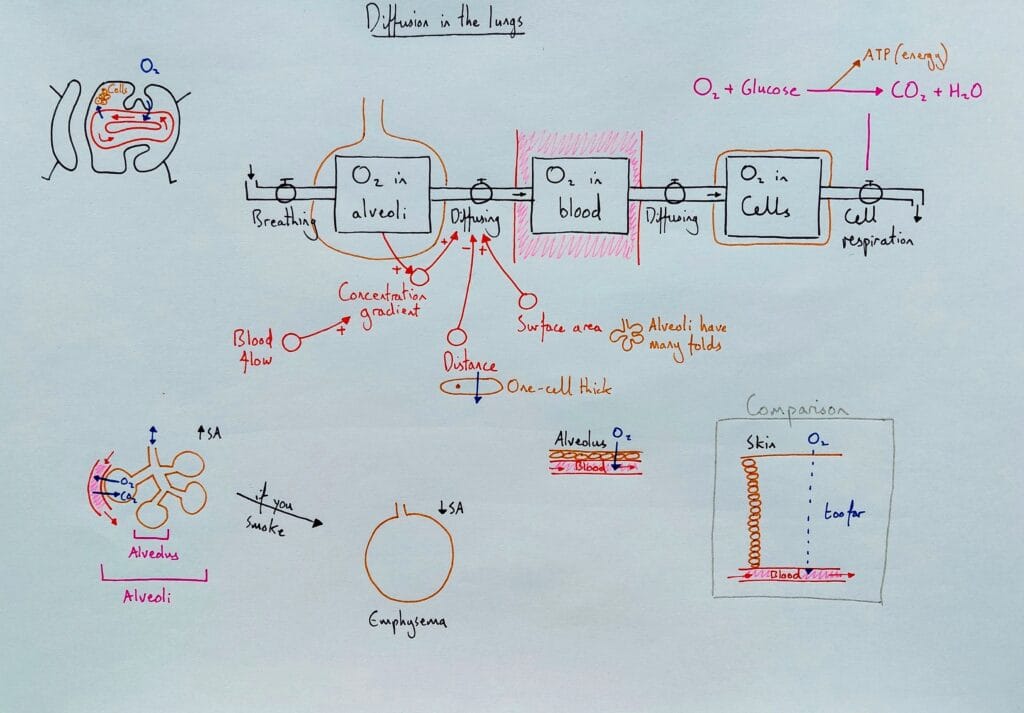 Diffusion in the lungs
O₂
Cells
ATP (energy)
O₂ + Glucose → CO₂ + H₂O
O₂ in
alveoli
O₂ in
blood
O₂ in
Cells
Breathing
Diffusing
Diffusing
Cell
respiration
+
+
-
+
Concentration
gradient
Blood
flow
+
Distance
Surface area
Alveoli have
many folds
One-cell thick
↑SA
O₂
CO₂
Alveolus
Alveoli
if you
smoke
↓SA
Emphysema
Alveolus
O₂
Blood
Comparison
Skin
O₂
too far
Blood